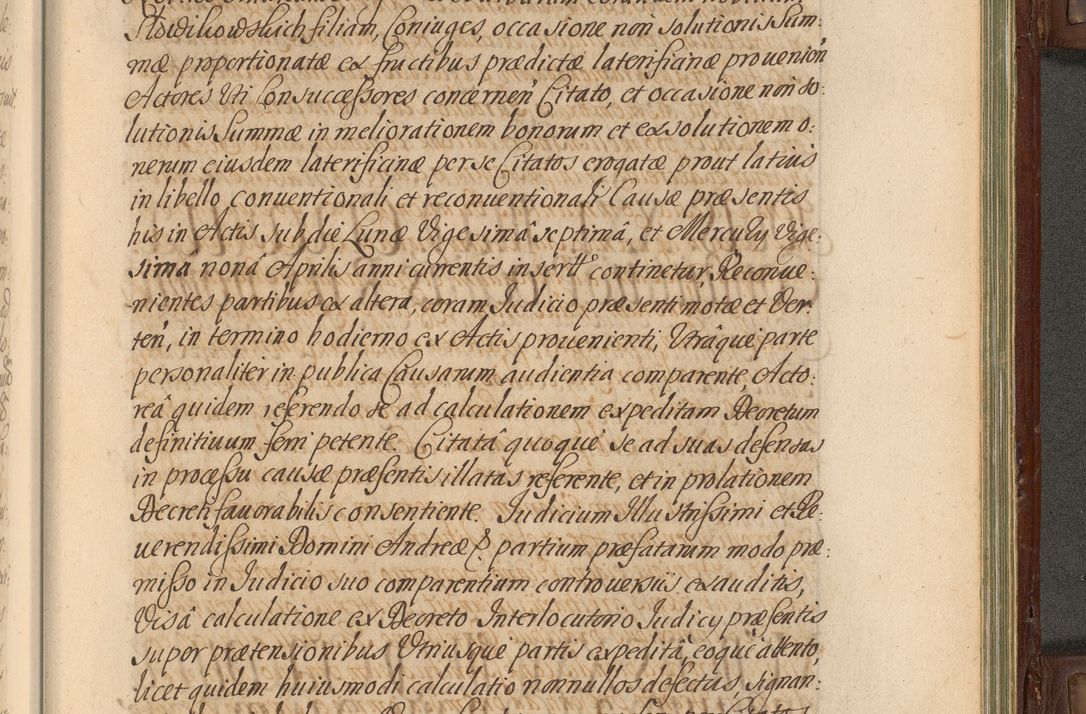 Stodilkowskich filiam, Coniuges, occasione non solutionis Sum:
mæ proportionatæ ex fructibus prædictæ laterificinæ prouenien̄
Actores Uti Consuccessores concernen̄ Citato, et occasione non so:
lutionis Summæ in meliorationem bonorum et exsolutionem o:
nerum eiusdem laterificinæ per se Citatos erogatæ prout latius
in libello conventionali et reconventionali Causæ præsentis
his in Actis sub die Lunæ Vigesimâ septimâ, et Mercurij Vige:
sima nonâ Aprilis anni currentis insertô continetur, Reconue:
nientes partibus ex altera, coram Judicio præsenti motæ et Ver:
ten̄, in termino hodierno ex Actis prouenienti, Utrâque parte
personaliter in publica Causarum audientia comparente, Acto:
reâ quidem referendo se ad calculationem expeditam Decretum
definitiuum ferri petente. Citatâ quoque se ad suas defensas
in processu causæ præsentis illatas referente, et in prolationem
Decreti fauorabilis consentiente. Judicium Illustrissimi et Re:
uerendissimi Domini Andreæ &c partium præfatarum modo præ:
misso in Judicio suo comparentium controuersiis exauditis,
Visâ calculatione ex Decreto Interlocutorio Judicij præsentis
super prætensionibus Utriusque partis expeditâ, eoque attento,
licet quidem huiusmodi calculatio nonnullos defectus, signan: